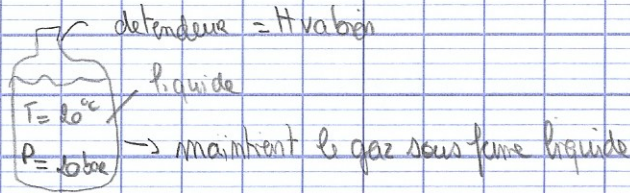 detendeur =
liquide
T = 20°C
P = 20 bar → maintient le gaz sous forme liquide